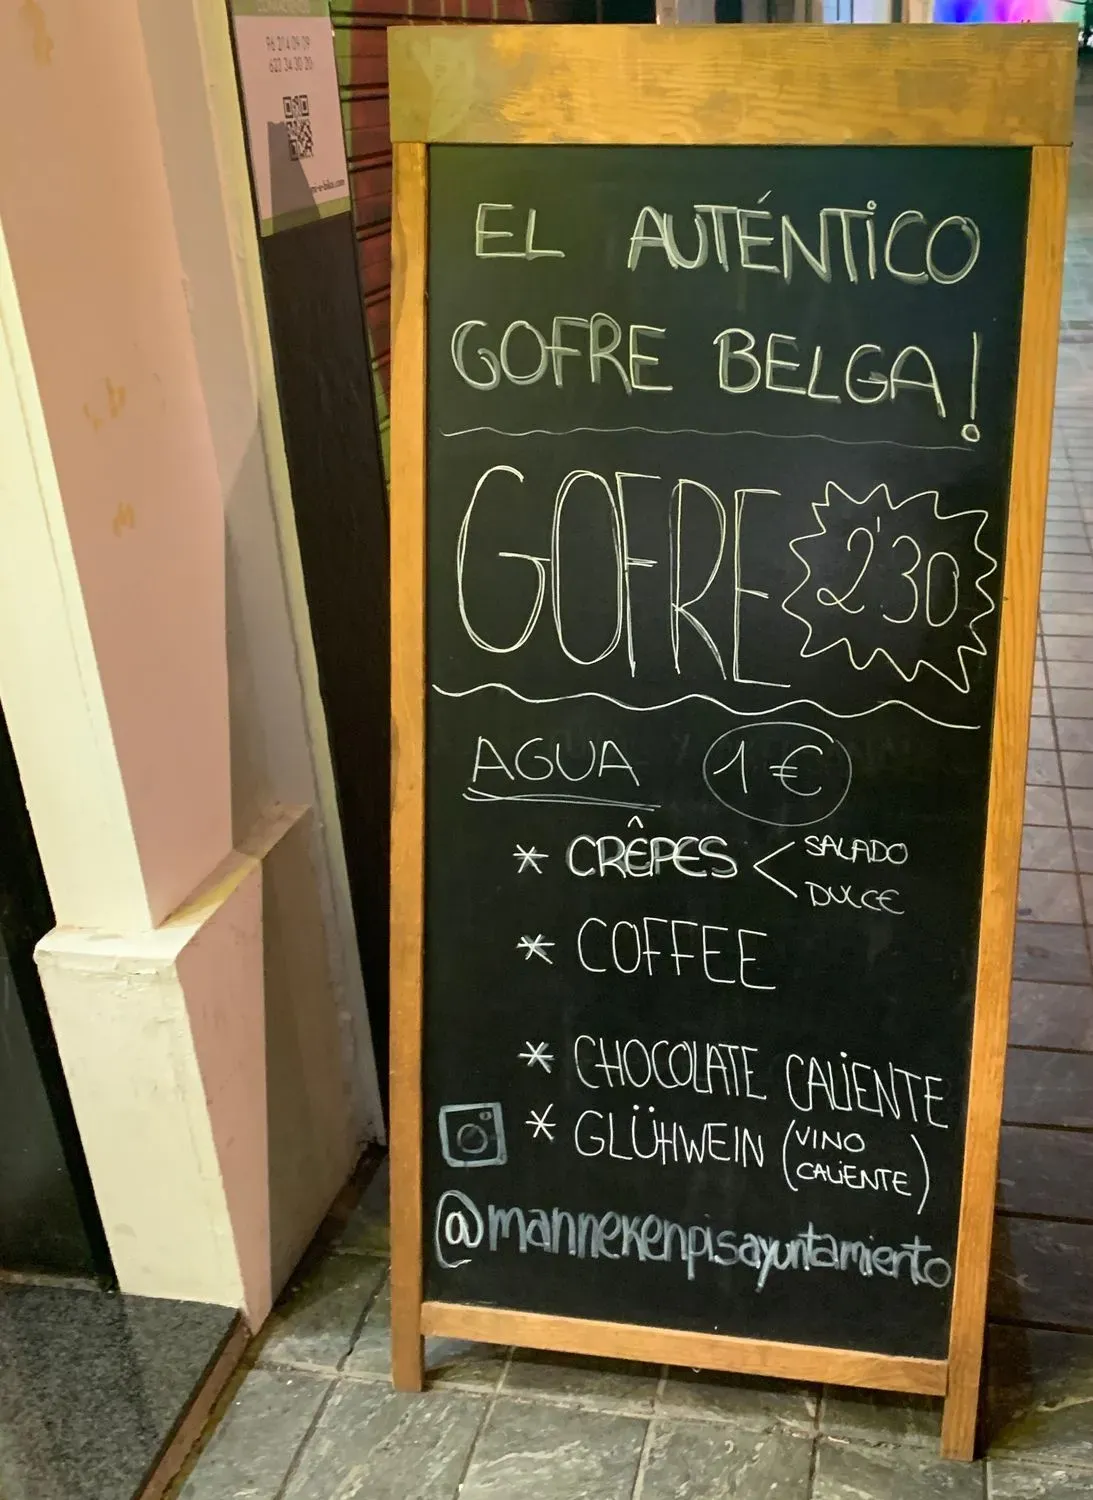 96 214 09 09
623 34 30 20
EL AUTÉNTICO
GOFRE BELGA!
GOFRE 2'30
AGUA 1€
* CRÊPES < SALADO
DULCE
* COFFEE
* CHOCOLATE CALIENTE
* GLÜHWEIN (VINO
CALIENTE)
@mannekenpisayuntamiento